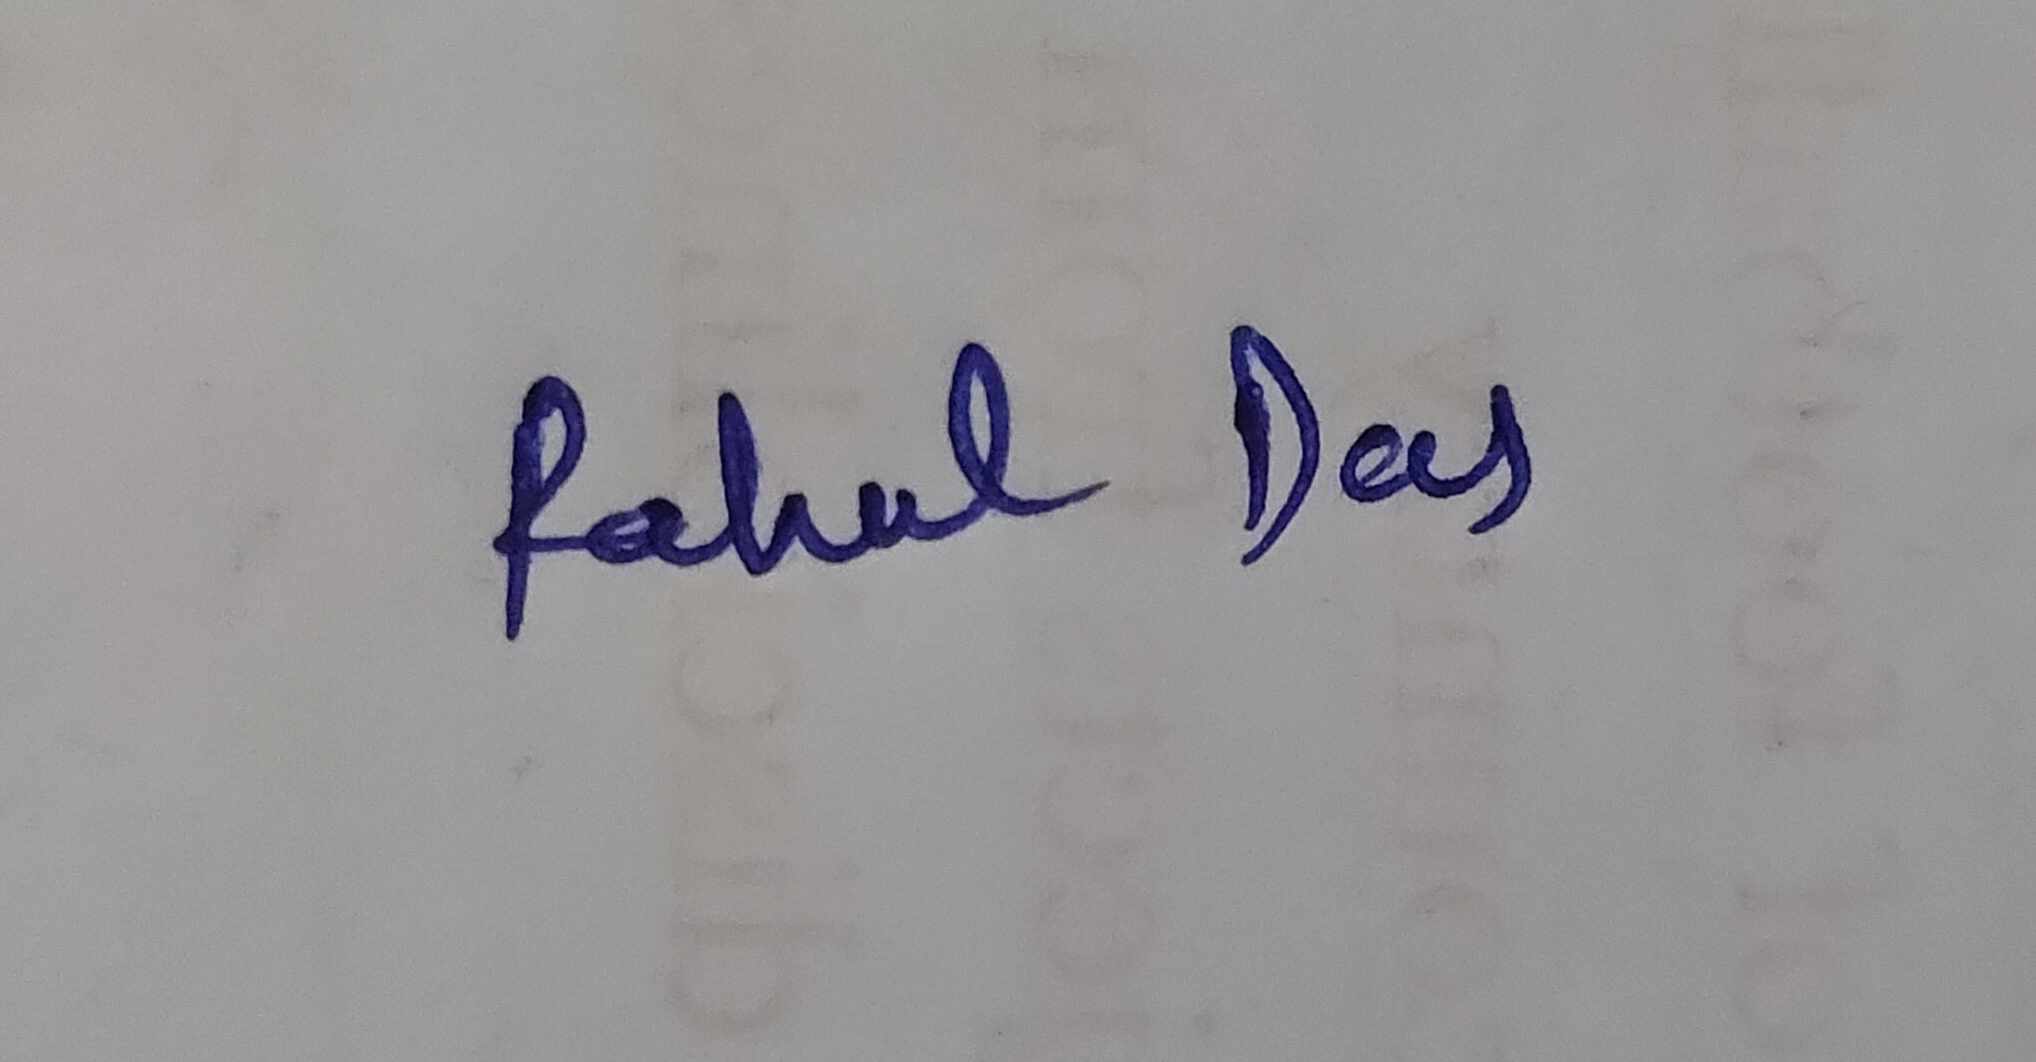 Rahul Das